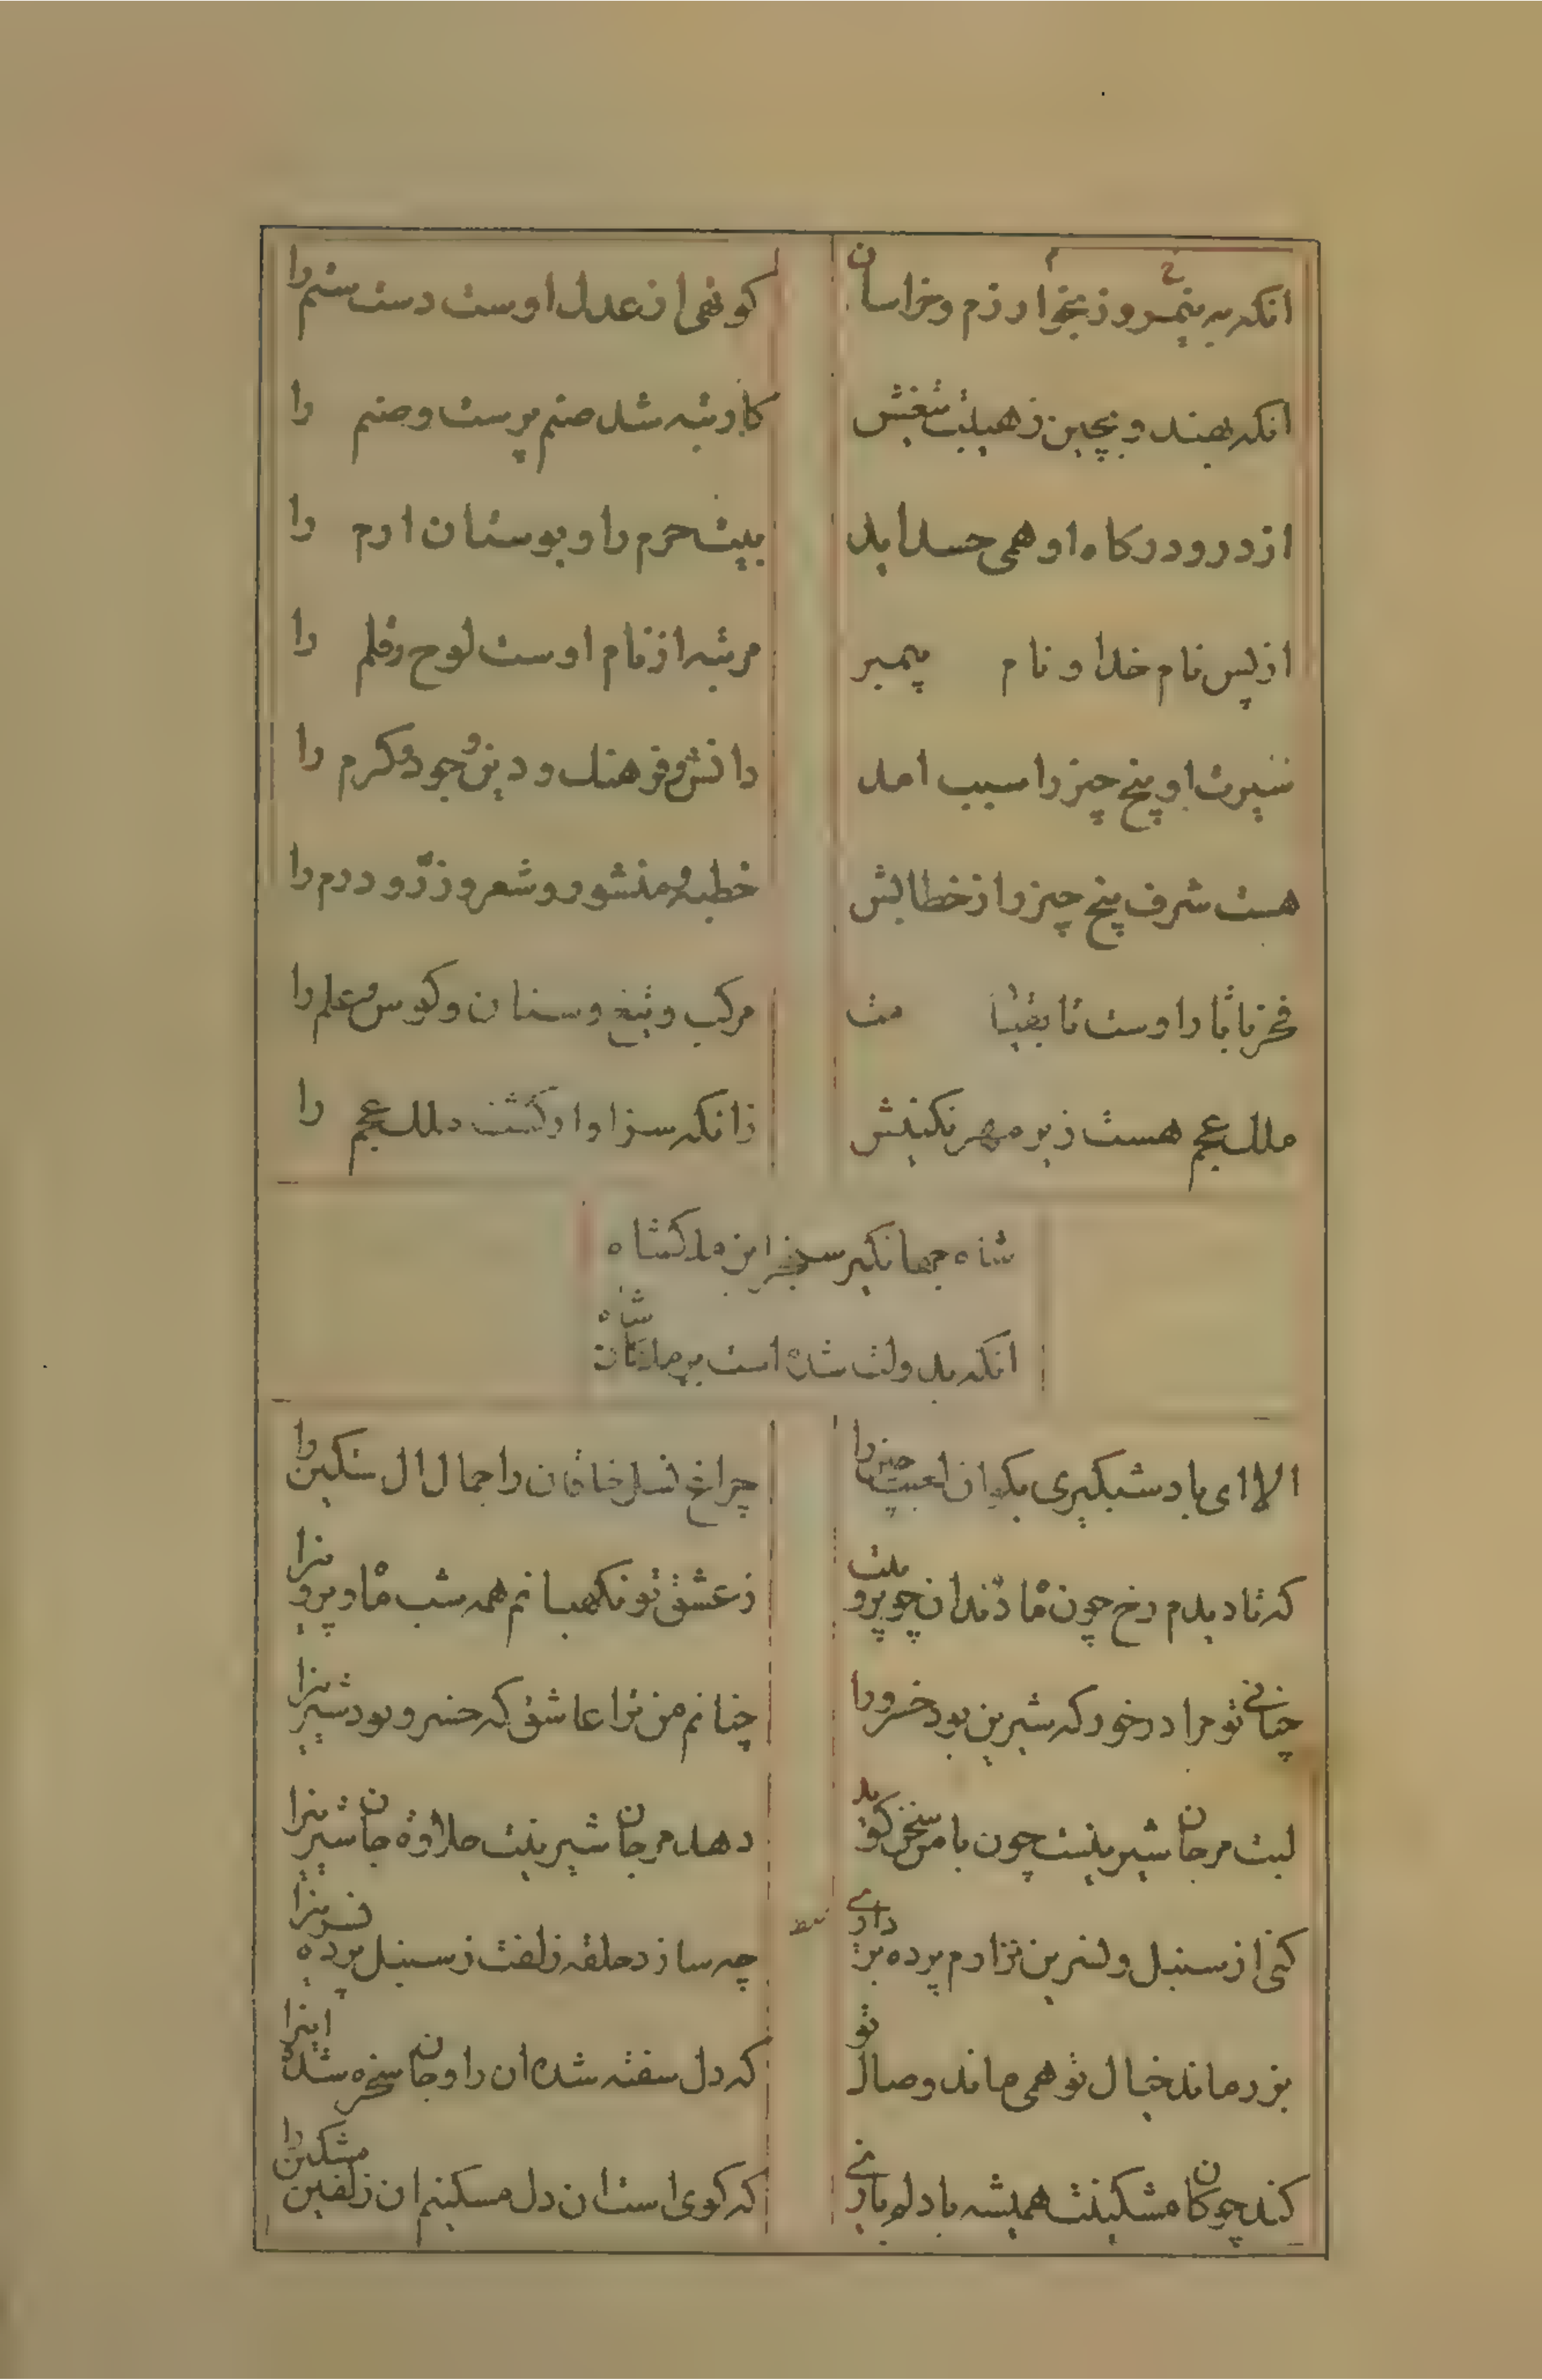 انکه به نیمروز بخوارزم و خراسان
کوتهی از عدل اوست دست ستم را
انکه بهند و بچین ز هیبت تیغش
کار تبه شد صنم پرست و صنم را
از در و درکاه او همی حسد اید
بیت حرم را و بوستان ارم را
از پس نام خدا و نام پیمبر
مرتبه از نام اوست لوح و قلم را
سیرت او پنج چیز را سبب امد
دانش و فرهنك و دین و جود و کرم را
هست شرف پنج چیز را از خطابش
خطبه و منشور و شعر و زر و درم را
فخر تا اوست تا بقیامت
مرکب و تیغ و سنان و کوس و علم را
ملك عجم هست زیر مهر نکینش
زانکه سزاوار کشت ملك عجم را
شاه جهانکیر سنجر ابن ملکشاه
انکه بدولت شده است بر ملکان شاه
الا ای باد شبکیری بکو ان لعبت چین را
چراغ نسل خاقان را جمال ال سنکین را
که تا دیدم رخ چون ماه و دندان چو پروینت
ز عشق تو نکهبانم همه شب ماه و پروینرا
چنانی تو مرا در خور که شیرین بود خسرو را
چنانم من ترا عاشق که خسرو بود شیرینرا
لبت مرجان شیرینست چون با من سخن کوید
دهد مرجان شیرینت حلاوة جان شیرینرا
کنی از سنبل و لنسرین ترا دم پرده بر داری
چه سازد حلقه زلفت ز سنبل پرده نسرینرا
بزر ماند خیال تو همی ماند وصال تو
که دل سفته شده ان را و جان سخره شده اینرا
کند چوکان مشکینت همیشه با دلم بازی
که کوی است ان دل مسکینم ان زلفین مشکین را